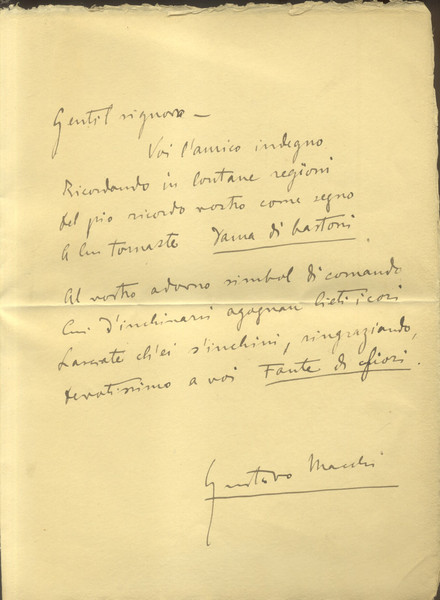 Gentil signora —
Voi l'amico indegno
Ricordando in lontane regioni
Del pio ricordo vostro come segno
A lui tornaste Dama di bastoni.
Al vostro adorno simbol di comando
Cui d'inchinarsi agognan lieti i cori
Lasciate ch'ei s'inchini, ringraziando,
Devotissimo a voi Fante di fiori.
Gustavo Macchi